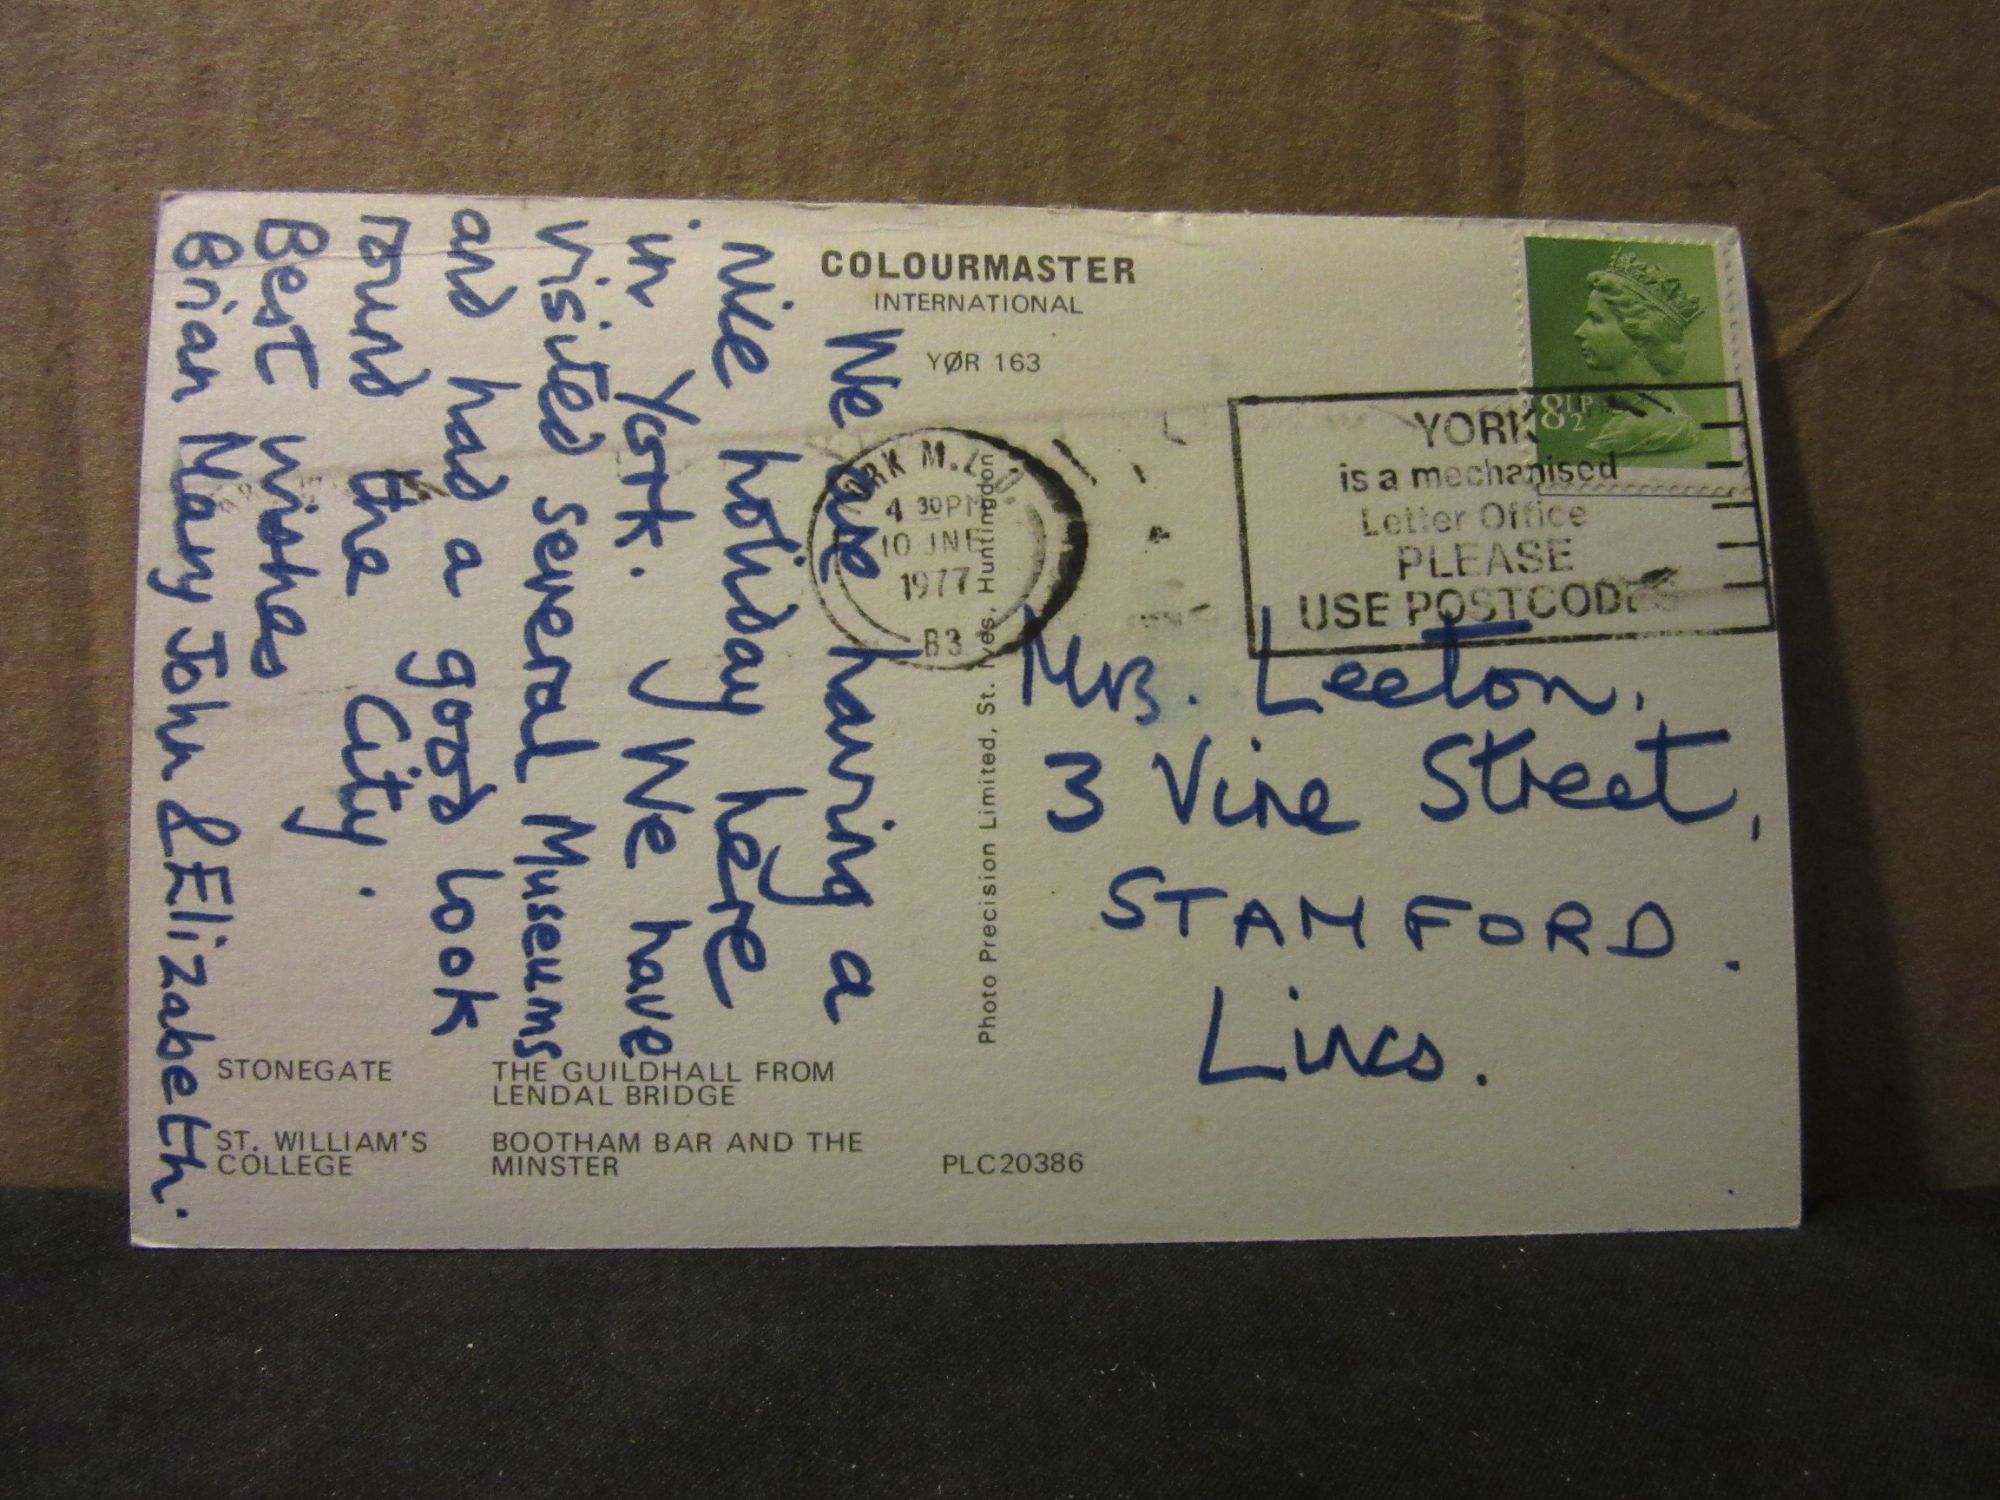 COLOURMASTER
INTERNATIONAL
YØR 163
We are having a
nice holiday here
in York. We have
visited several Museums
and had a good look
round the City.
Best wishes
Brian Mary John & Elizabeth.
YORK
is a mechanised
Letter Office
PLEASE
USE POSTCODES
8½P
YORK M.L.O.
4 30PM
10 JNE
1977
B3
Photo Precision Limited, St. Ives, Huntingdon
Mrs. Leeton,
3 Vine Street,
STAMFORD.
Lincs.
STONEGATE
THE GUILDHALL FROM
LENDAL BRIDGE
ST. WILLIAM'S
COLLEGE
BOOTHAM BAR AND THE
MINSTER
PLC20386